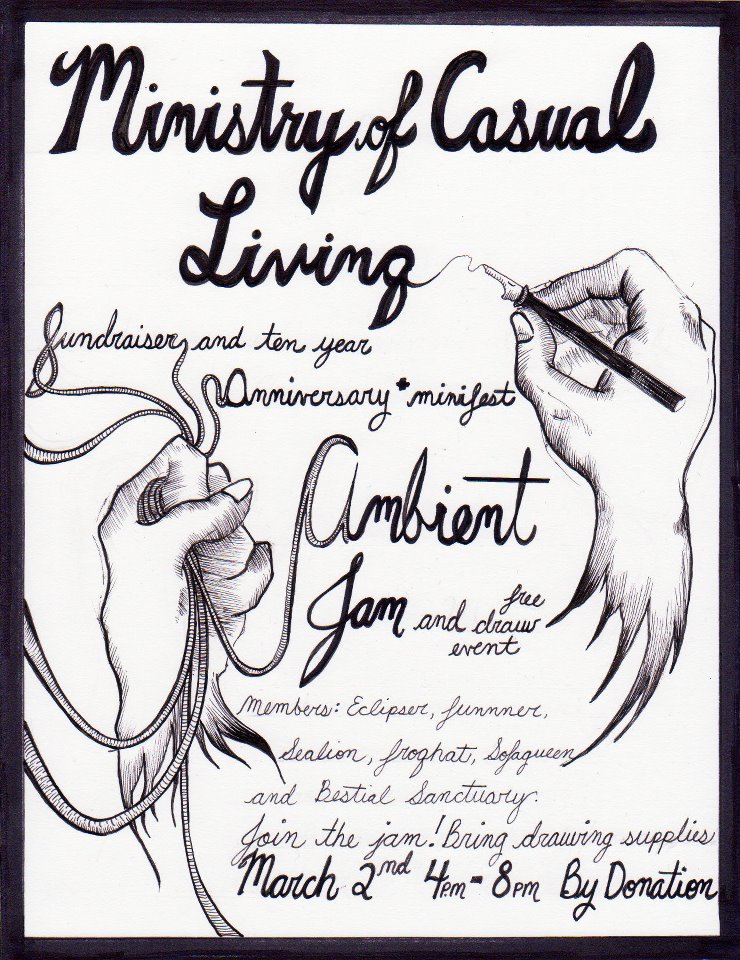 Ministry of Casual
Living
fundraiser and ten year
Anniversary + minifest
Ambient
Jam and free draw event
Members: Eclipser, funnner,
Sealion, froghat, Sofaqueen
and Bestial Sanctuary.
Join the jam! Bring drawing supplies
March 2nd 4PM - 8PM By Donation